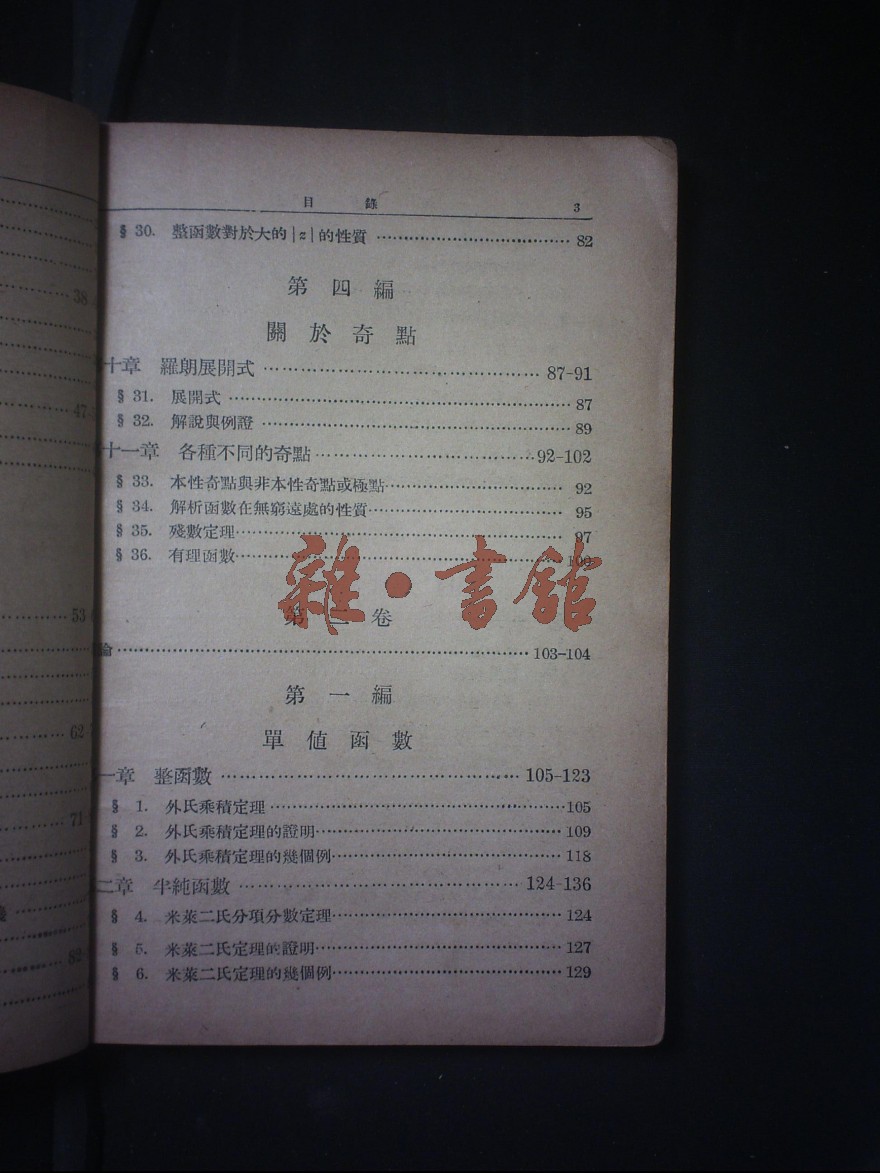 目 錄 3
§ 30. 整函數對於大的 |z| 的性質 82
第四編
關於奇點
十章 羅朗展開式 87-91
§ 31. 展開式 87
§ 32. 解說與例證 89
十一章 各種不同的奇點 92-102
§ 33. 本性奇點與非本性奇點或極點 92
§ 34. 解析函數在無窮遠處的性質 95
§ 35. 殘數定理 97
§ 36. 有理函數 100
雜·書館
第二卷
論 103-104
第一編
單値函數
一章 整函數 105-123
§ 1. 外氏乘積定理 105
§ 2. 外氏乘積定理的證明 109
§ 3. 外氏乘積定理的幾個例 118
二章 半純函數 124-136
§ 4. 米萊二氏分項分數定理 124
§ 5. 米萊二氏定理的證明 127
§ 6. 米萊二氏定理的幾個例 129
38
47
53
62
71
82